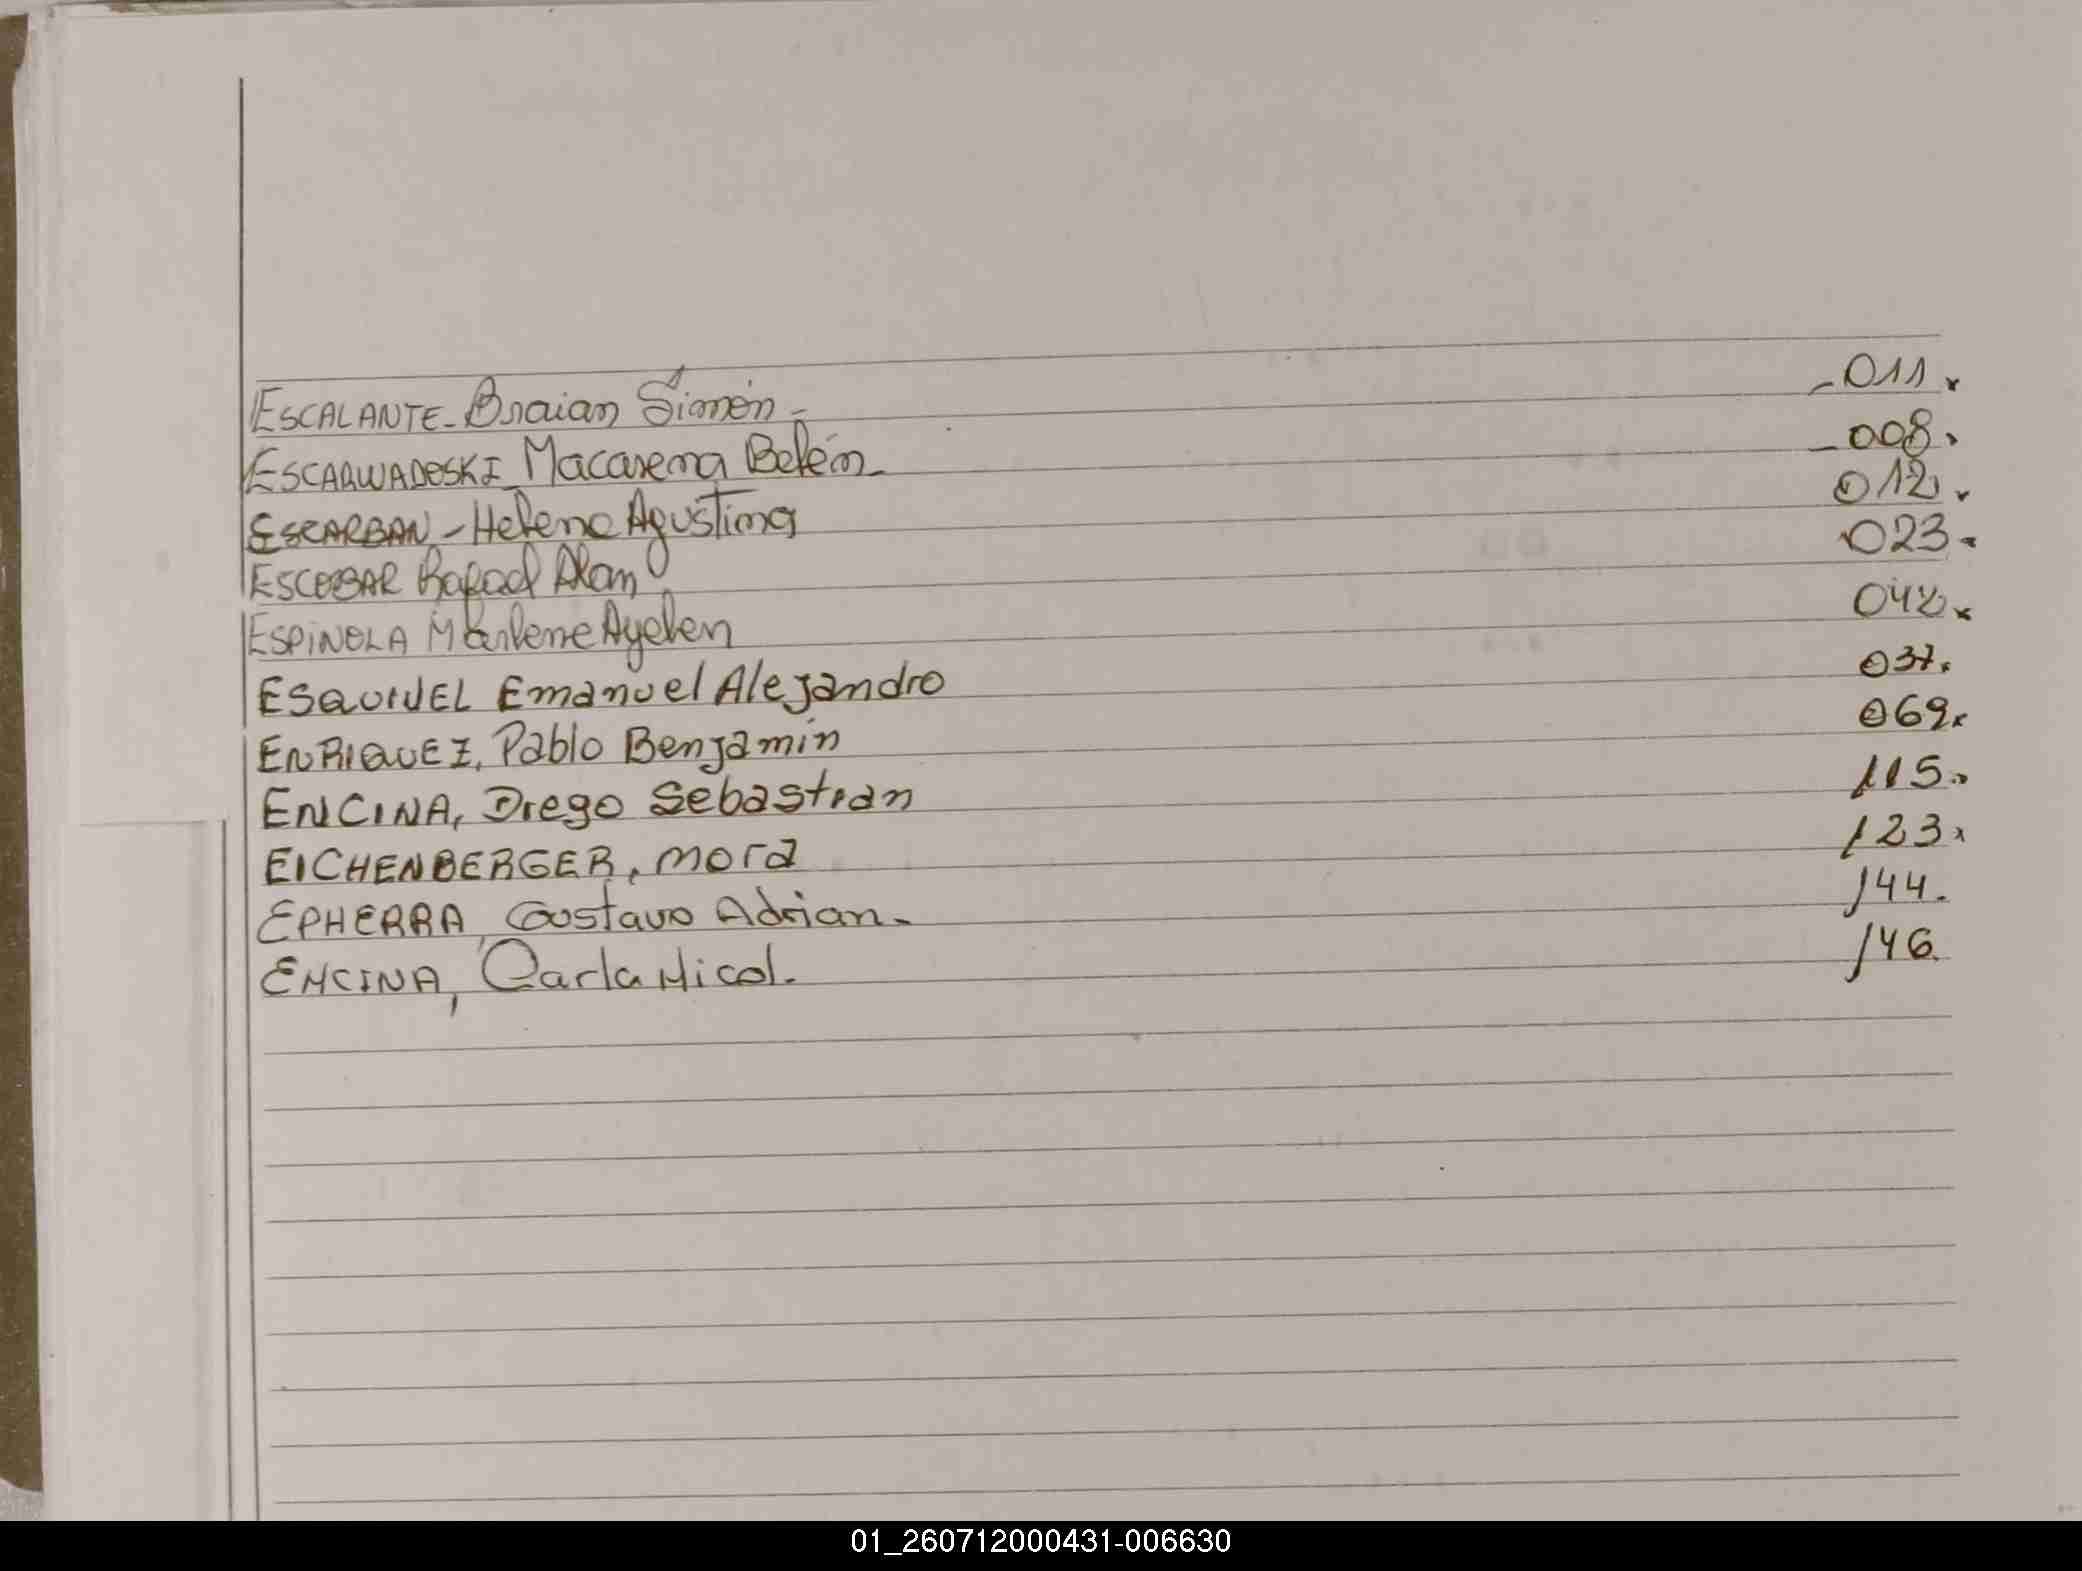 ESCALANTE - Braian Simón - - 011.
ESCARWADOSKI - Macarena Belén - - 008.
ESCARBAN - Helena Agustina 012.
ESCOBAR Rafael Alan 023.
ESPINOLA Marlene Ayelen 042.
ESQUIVEL Emanuel Alejandro 037.
ENRIQUEZ, Pablo Benjamin 069.
ENCINA, Diego Sebastian 115.
EICHENBERGER, Mora 123.
EPHERRA, Gustavo Adrian. 144.
ENCINA, Carla Nicol. 146.
01_260712000431-006630